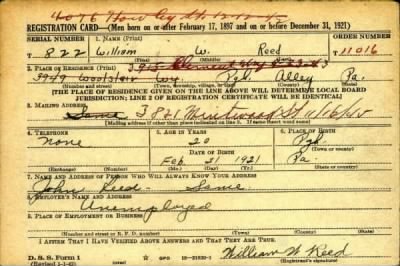 REGISTRATION CARD—(Men born on or after February 17, 1897 and on or before December 31, 1921)
SERIAL NUMBER 1. NAME (Print) ORDER NUMBER
T 822 William W. Reed T 11016
(First) (Middle) (Last)
2. PLACE OF RESIDENCE (Print)
3949 Pgh. Alley Pa.
(Number and street) (Town, township, village, or city) (County) (State)
[THE PLACE OF RESIDENCE GIVEN ON THE LINE ABOVE WILL DETERMINE LOCAL BOARD
JURISDICTION; LINE 2 OF REGISTRATION CERTIFICATE WILL BE IDENTICAL]
3. MAILING ADDRESS
Same
[Mailing address if other than place indicated on line 2. If same insert word same]
4. TELEPHONE 5. AGE IN YEARS 6. PLACE OF BIRTH
None 20 Pgh.
DATE OF BIRTH (Town or county)
Feb. 21 1921 Pa.
(Exchange) (Number) (Mo.) (Day) (Yr.) (State or country)
7. NAME AND ADDRESS OF PERSON WHO WILL ALWAYS KNOW YOUR ADDRESS
John Reed - Same
8. EMPLOYER'S NAME AND ADDRESS
Unemployed
9. PLACE OF EMPLOYMENT OR BUSINESS
(Number and street or R. F. D. number) (Town) (County) (State)
I AFFIRM THAT I HAVE VERIFIED ABOVE ANSWERS AND THAT THEY ARE TRUE.
D. S. S. Form 1
(Revised 1-1-42) (over)
William W Reed
(Registrant's signature)